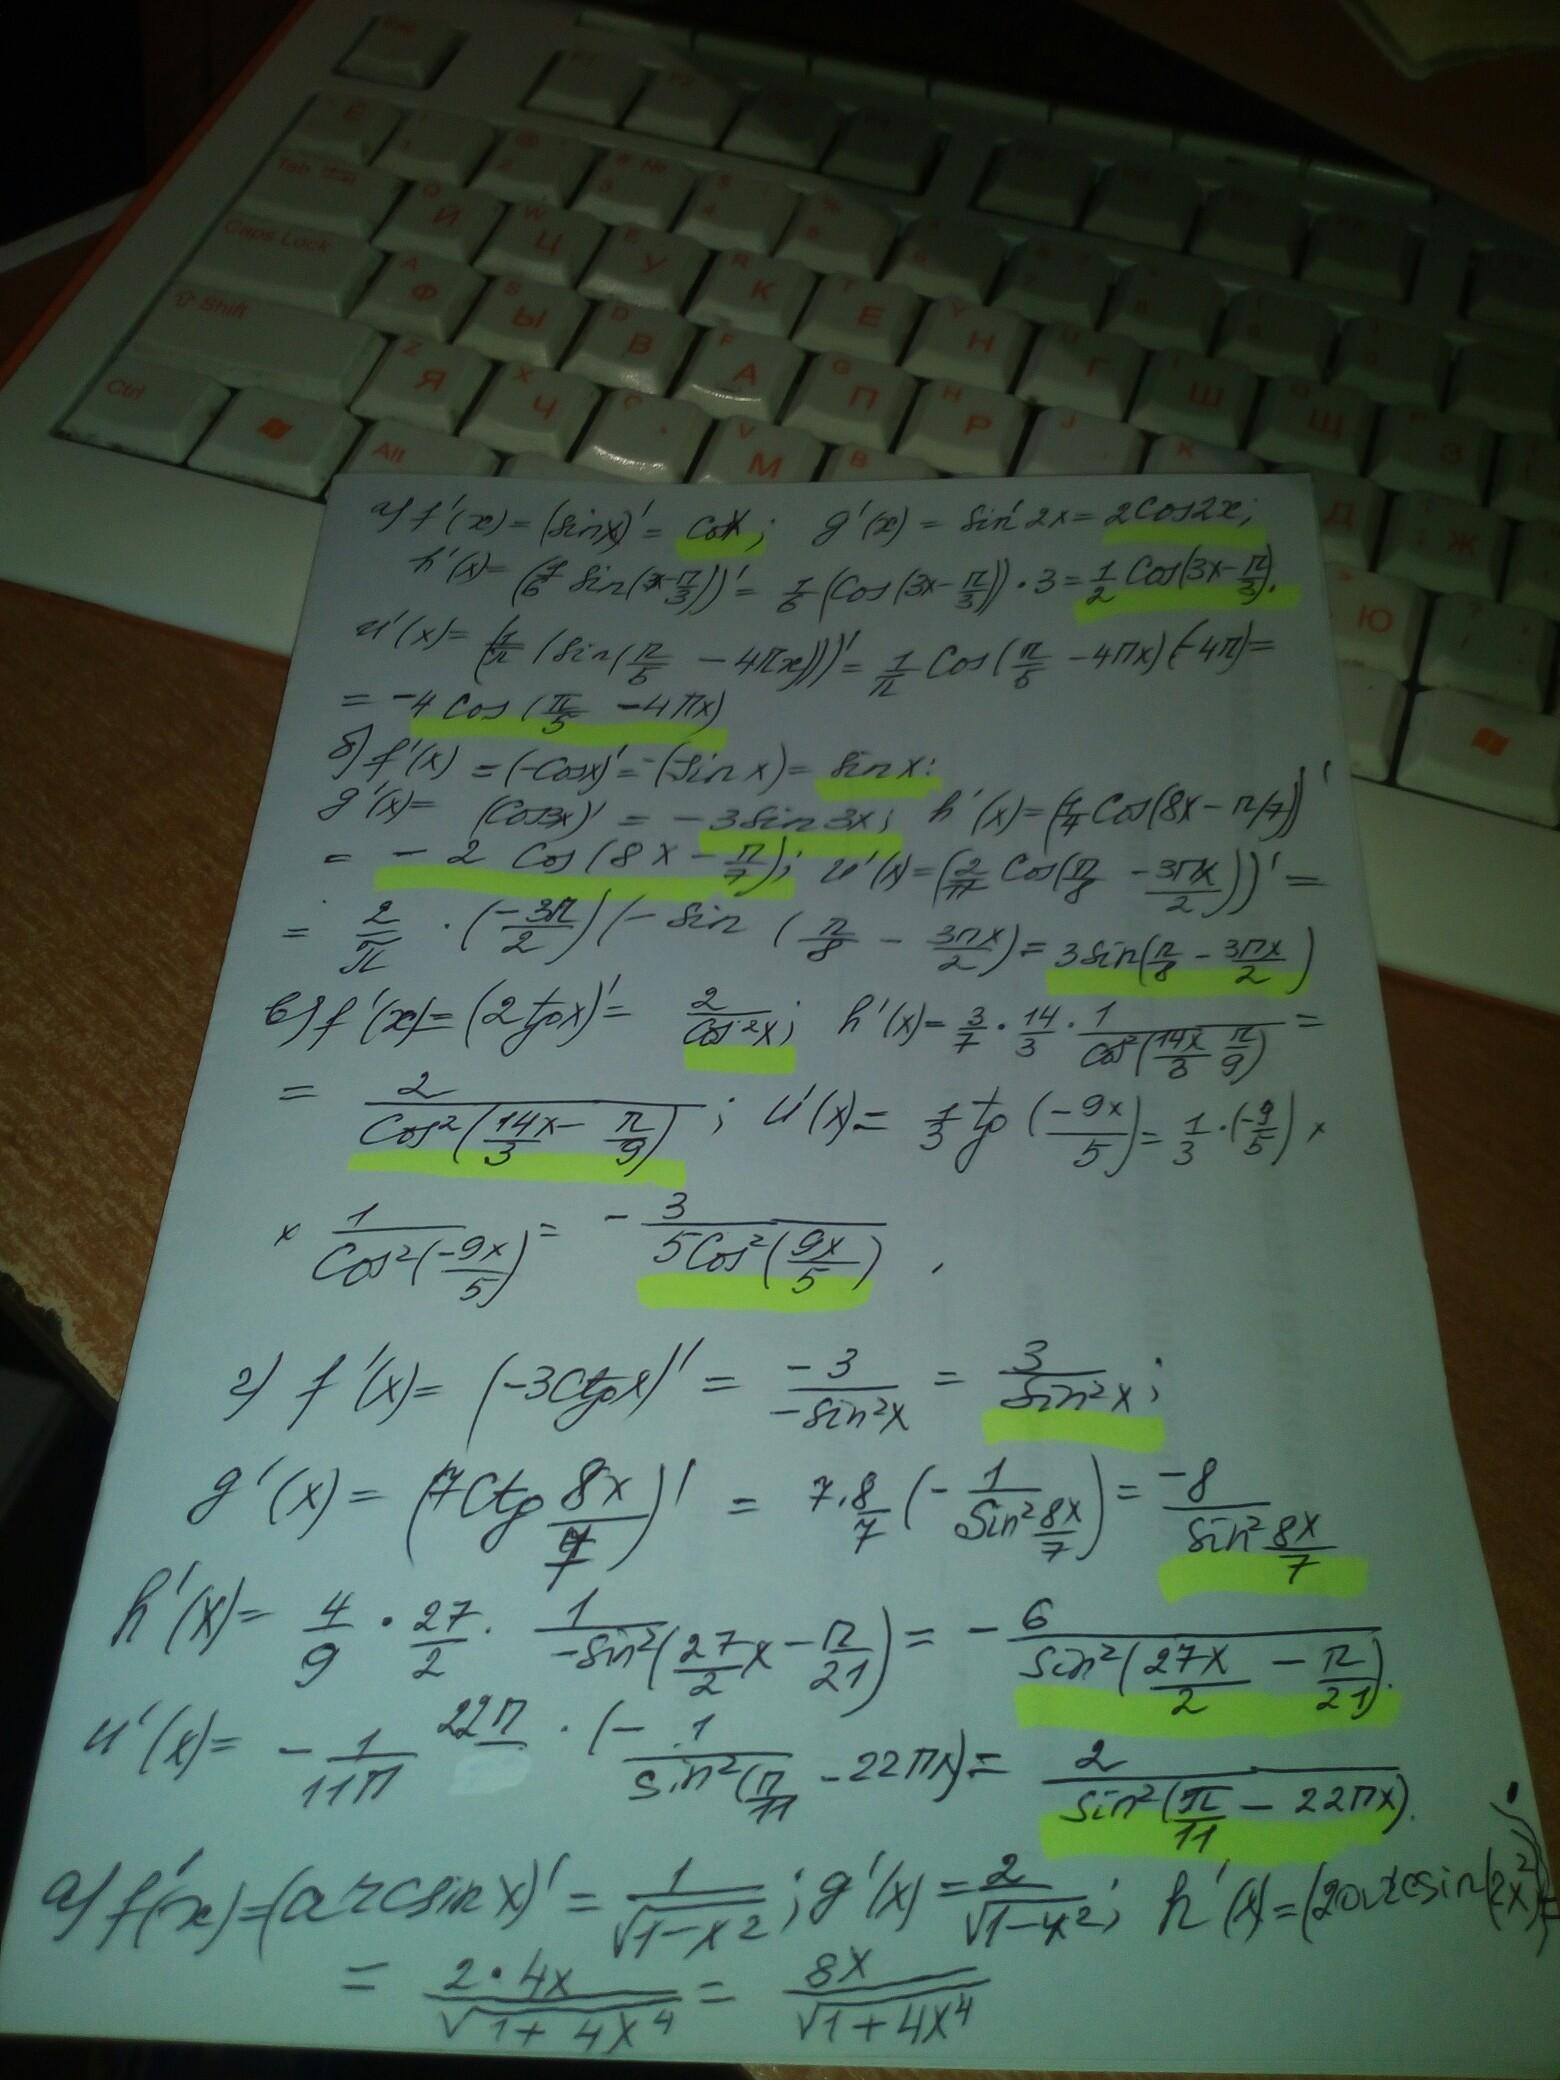 Tab
Caps Lock
Shift
Ctrl
Alt
Q Й W Ц E У R К Е Y Н Г Ш Щ З
A Ф S Ы D В F А G П H Р J К Д Ж
Z Я X Ч C V М B Ю
а) f'(x) = (sinx)' = cosx; g'(x) = sin'2x = 2cos2x;
h'(x) = (1/6 sin(3x-π/3))' = 1/6 (Cos(3x-π/3))·3 = 1/2 Cos(3x-π/3).
u'(x) = (1/π (sin(π/5 - 4πx)))' = 1/π Cos(π/5 - 4πx)(-4π) =
= -4 Cos(π/5 - 4πx)
б) f'(x) = (-Cosx)' = -(-Sin x) = sin x:
g'(x) = (Cos3x)' = -3sin3x; h'(x) = (1/4 Cos(8x - π/7))'
= - 2 Cos(8x - π/7); u'(x) = (2/π Cos(π/8 - 3πx/2))' =
= 2/π · (-3π/2)(- Sin (π/8 - 3πx/2) = 3Sin(π/8 - 3πx/2)
в) f'(x) = (2tgx)' = 2/Cos²x; h'(x) = 3/7 · 14/3 · 1/Cos²(14x/3 π/9) =
= 2/Cos²(14x/3 - π/9); u'(x) = 1/3 tg (-9x/5) = 1/3 · (-9/5) ×
× 1/Cos²(-9x/5) = - 3/5Cos²(9x/5) ,
г) f'(x) = (-3Ctgx)' = -3/-Sin²x = 3/Sin²x;
g'(x) = (7Ctg 8x/7)' = 7·8/7 (-1/Sin² 8x/7) = -8/Sin² 8x/7
h'(x) = 4/9 · 27/2 · 1/-Sin²(27/2 x - π/21) = - 6/Sin²(27x/2 - π/21).
u'(x) = - 1/11π 22π · (- 1/Sin²(π/11 - 22πx) = 2/Sin²(π/11 - 22πx).
а) f'(x) = (arcsinx)' = 1/√1-x²; g'(x) = 2/√1-x²; h'(x) = (2arcsin(2x²))' =
= 2·4x/√1+4x⁴ = 8x/√1+4x⁴